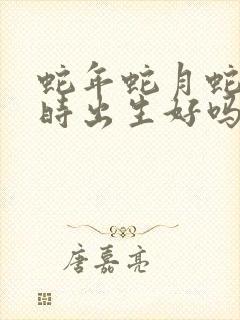 蛇年蛇月蛇
时出生好吗
唐嘉亮